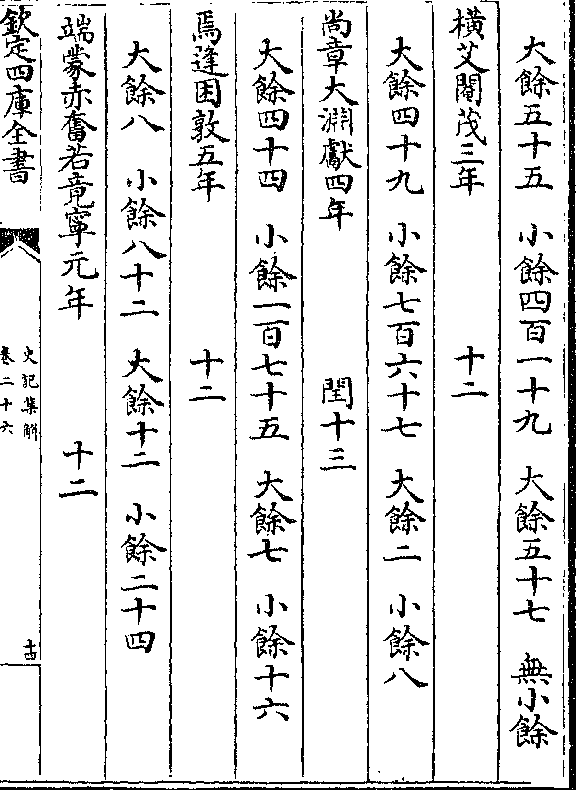 大餘五十五　小餘四百一十九　大餘五十七　無小餘
橫艾閹茂三年　十二
大餘四十九　小餘七百六十七　大餘二　小餘八
尚章大淵獻四年　閏十三
大餘四十四　小餘一百七十五　大餘七　小餘十六
焉逢困敦五年　十二
大餘八　小餘八十二　大餘十二　小餘二十四
端蒙赤奮若竟寧元年　十二
欽定四庫全書
史記集解
卷二十六
十四